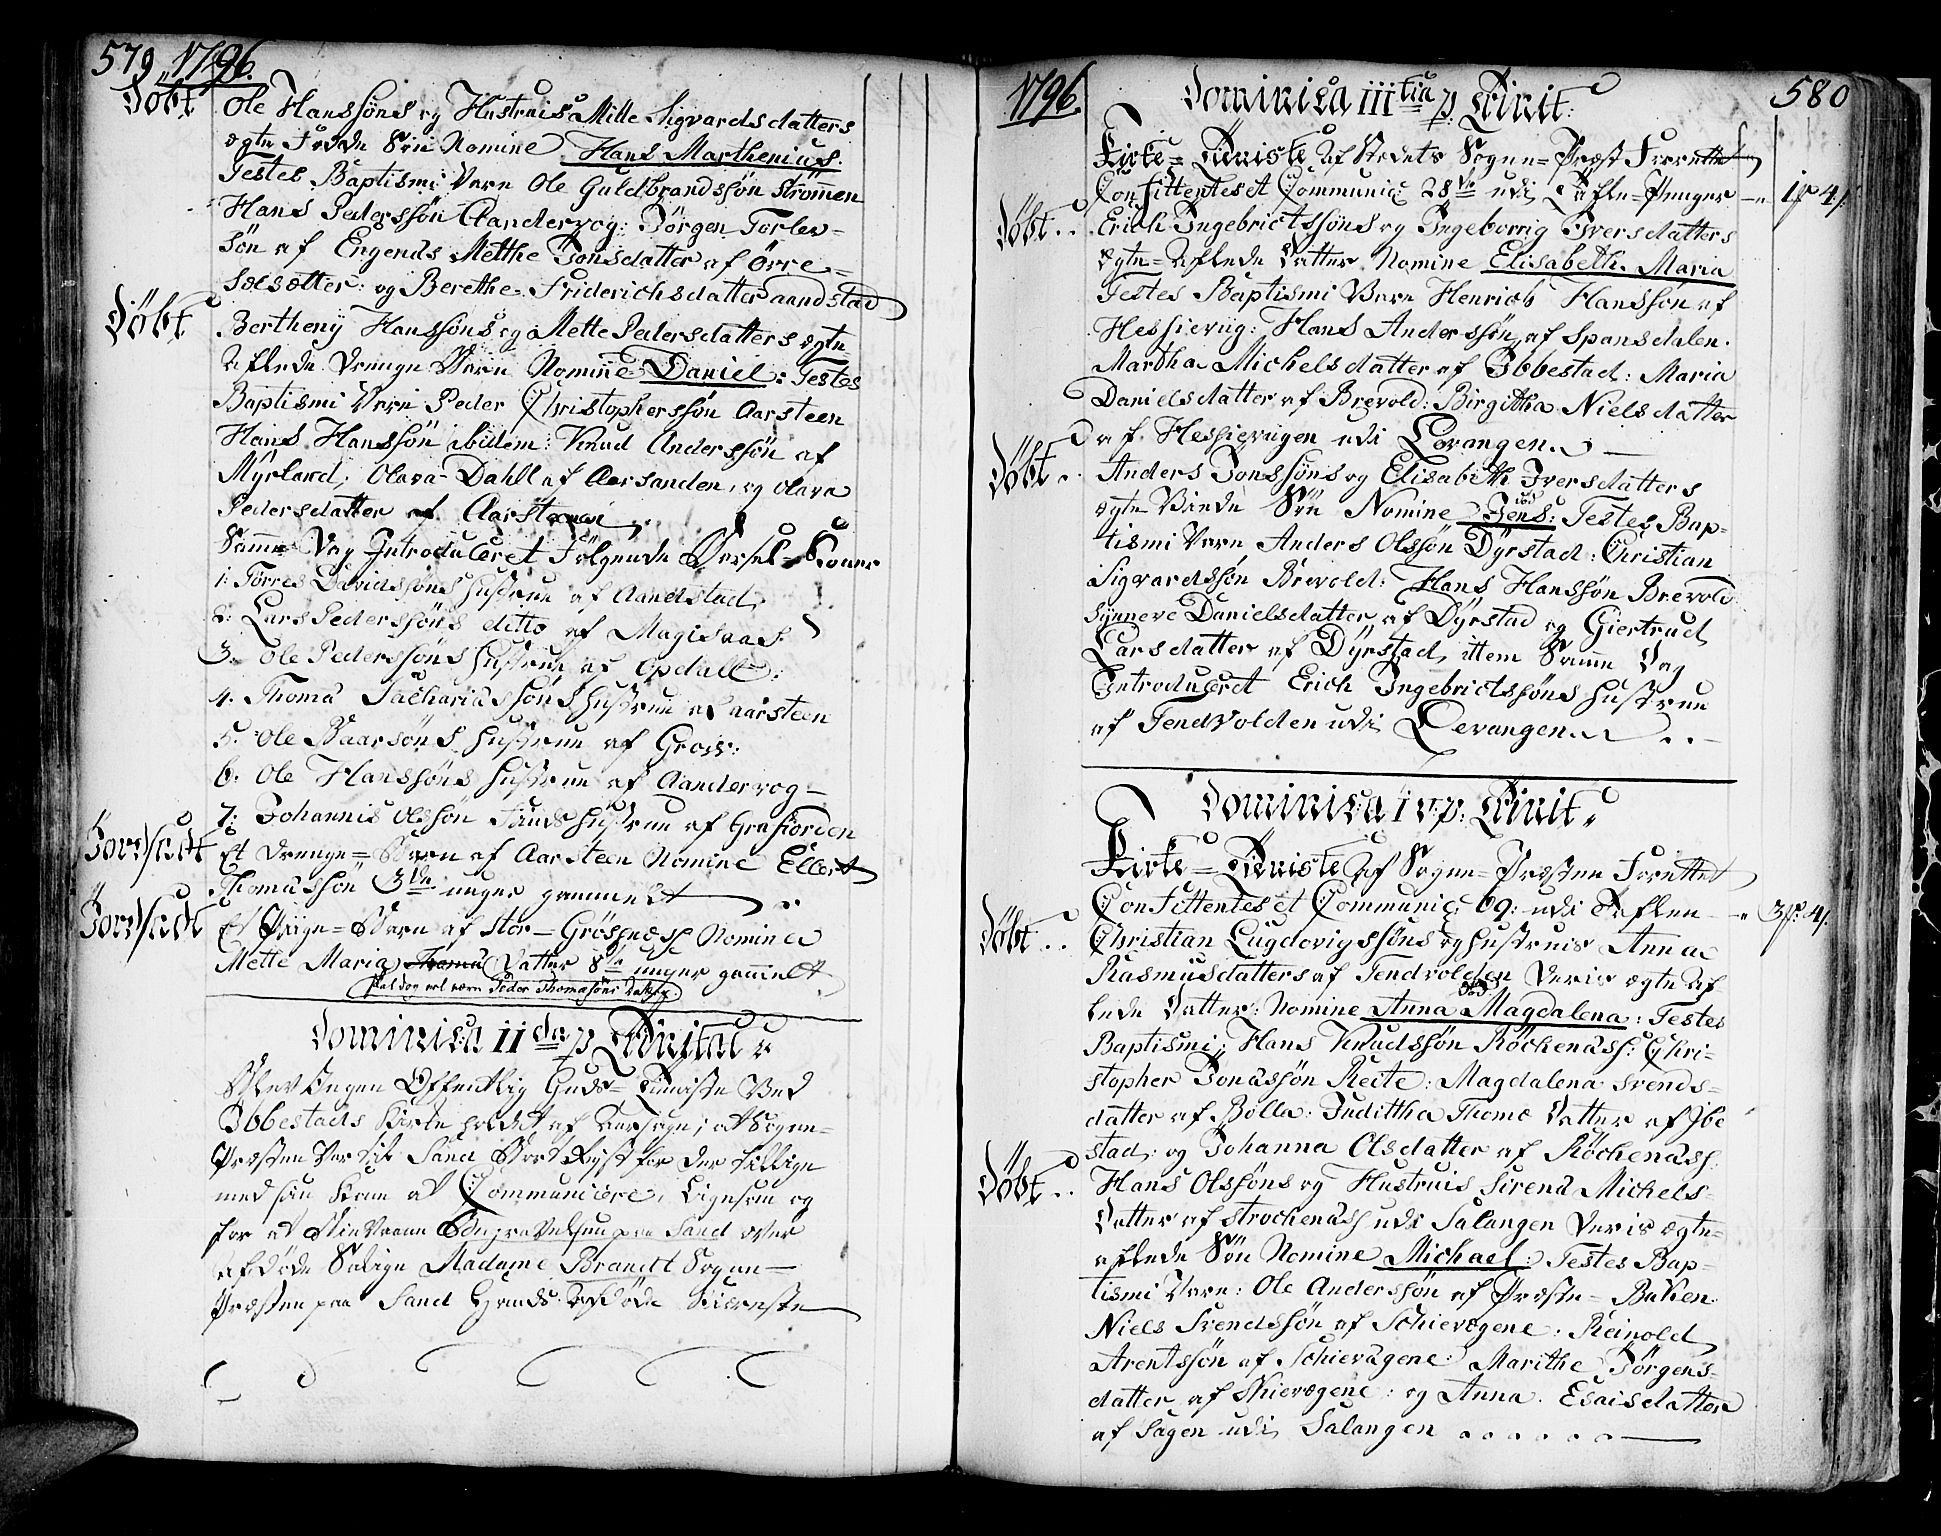 579 1796.
Döbt
Ole Hanssöns og Hustruis Mille Sigvardsdatters
ægte Födde Sön Nomine Hans Marthenius.
Testes Baptismi Vare Ole Guldbrandssön Strömen
Hans Pederssön Aandervog: Jörgen Torlev-
sön af Engenes Metthe Jonsdatter af Örre-
Sælsætter: og Berethe Friderichsdatter aandstad
Döbt
Bertheny Hanssöns og Mette Pedersdatters ægte
Aflede Drenge Barn Nomine Daniel: Testes
Baptismi Vare Peder Christopherssön Aarsteen
Hans Hanssön ibidem: Knud Anderssön af
Myrland: Olava Dahll af Aarsanden, og Olava
Pedersdatter af Aarsteenen
Samme Dag Introduceret Fölgende Barsel-Koner
1: Törres Davidssöns Hustrue af Aandstad
2: Lars Pederssöns ditto af Magisaas
3. Ole Pederssöns Hustrue af Opdall:
4. Thoma Sachariassöns Hustrue af aarsteen
5. Ole Baarsöns Hustrue af Grov:
6. Ole Hanssöns Hustrue af Aandervog-
7: Johannis Olssön Hustrue af Grafiorden
Jordfæst
Et Drenge=Barn af Aarsteen Nomine Ellert
Thomassön 3de uger gammelt
Jordfæst
Et Piige=Barn af Stor-Grössnæss Nomine
Mette Maria Thoma Datter 8te uger gamelt
skal dog vel være Peder Thomasöns Datter.
Dominica IIda p Trinitat
Blev Ingen Offentlig Guds=Tieniste Ved
Ibbestads Kirke holdet af Aarsage, at Sogne=
Præsten Var til Sand Bort Reist for der tillige
med sin Kone at Communicere, Ligesom og
for at bievaane paa Sand over
afdöde Salige Madame Brandt Sogne-
Præsten paa Sand Hands Afdöde Kiæreste
1796.
Dominica IIItia p: Trinit:
580
Kirke=Tieniste Af Stedets Sogne=Præst Forrettet
Confittentes et Communic: 28de udi Tafle=Penger — 1 4/
Döbt..
Erich Ingebrictssöns og Ingeborrig Iversdatters
ægte=Aflede Datter Nomine Elisabeth Maria
Testes Baptismi Vare Henrich Hanssön af
Hessievug: Hans Anderssön af Spansdalen.
Martha Michelsdatter af Ibbestad: Maria
Danielsdatter af Brevold: Birgitha Nielsdatter
af Hessievugen udi Lovangen.
Döbt..
Anders Jonssöns og Elisabeth Iversdatters
ægte Sön Nomine Jens: Testes Bap-
tismi Vare Anders Olssön Dyrstad: Christian
Sigvardssön Brevold: Hans Hanssön Brevold
Synneve Danielsdatter af Dyrstad og Giertrud
Larsdatter af Dyrstad, ittem Samme Dag
Introduceret Erich Ingebrictssöns Hustrue
af Tendvolden udi Levangen.
Dominica IV p: Trinit.
Kirke=Tieniste Af Sogne=Præsten Forrettet
Confittentes et Communic: 69: udi Taflen — 3 4/
Döbt..
Christian Lugdovigssöns og Hustruis Anna
Rasmusdatters af Tendvolden Veris ægte Af-
lede Datter: Nomine Anna Magdalena: Testes
Baptismi: Hans Knudssön Röckenæss: Chri-
stopher Jonassön Reite: Magdalena Svends-
datter af Bolla: Judittha Thomæ Datter af Ibe
stad: og Johanna Olsdatter af Röckenæss:
Döbt..
Hans Olssöns og Hustruis Sirena Michels-
Datter af Strochenæss udi Salangen Deris ægte=
aflede Sön Nomine Michael: Testes Bap-
tismi Vare: Ole Anderssön af Præste-Baken
Niels Svendssön af Schievægene: Reinold
Arentssön af Schievagene: Marithe Jörgens-
datter af Skievægene: og Anna Esaisdatter
af Sagen udi Salangen